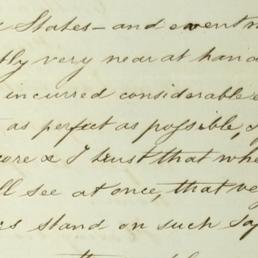 States - and event
tly very near at hand
incurred considerable
as perfect as possible,
& I trust that whe
ll see at once, that ve
stand on such